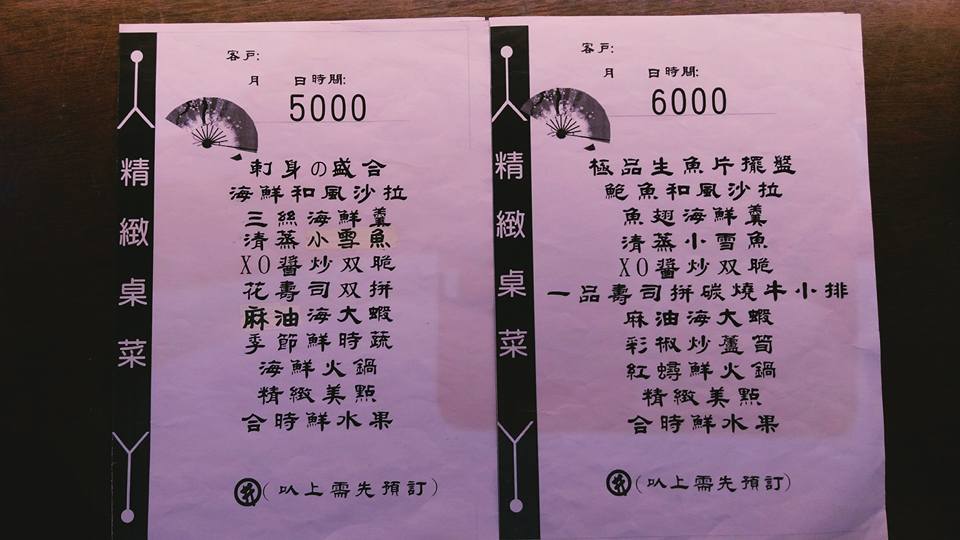 精緻桌菜
客戶:
月 日時間:
5000
刺身の盛合
海鮮和風沙拉
三絲海鮮羹
清蒸小雪魚
XO醬炒双脆
花壽司双拼
麻油海大蝦
季節鮮時蔬
海鮮火鍋
精緻美點
合時鮮水果
(以上需先預訂)
精緻桌菜
客戶:
月 日時間:
6000
極品生魚片擺盤
鮑魚和風沙拉
魚翅海鮮羹
清蒸小雪魚
XO醬炒双脆
一品壽司拼碳燒牛小排
麻油海大蝦
彩椒炒蘆筍
紅蟳鮮火鍋
精緻美點
合時鮮水果
(以上需先預訂)